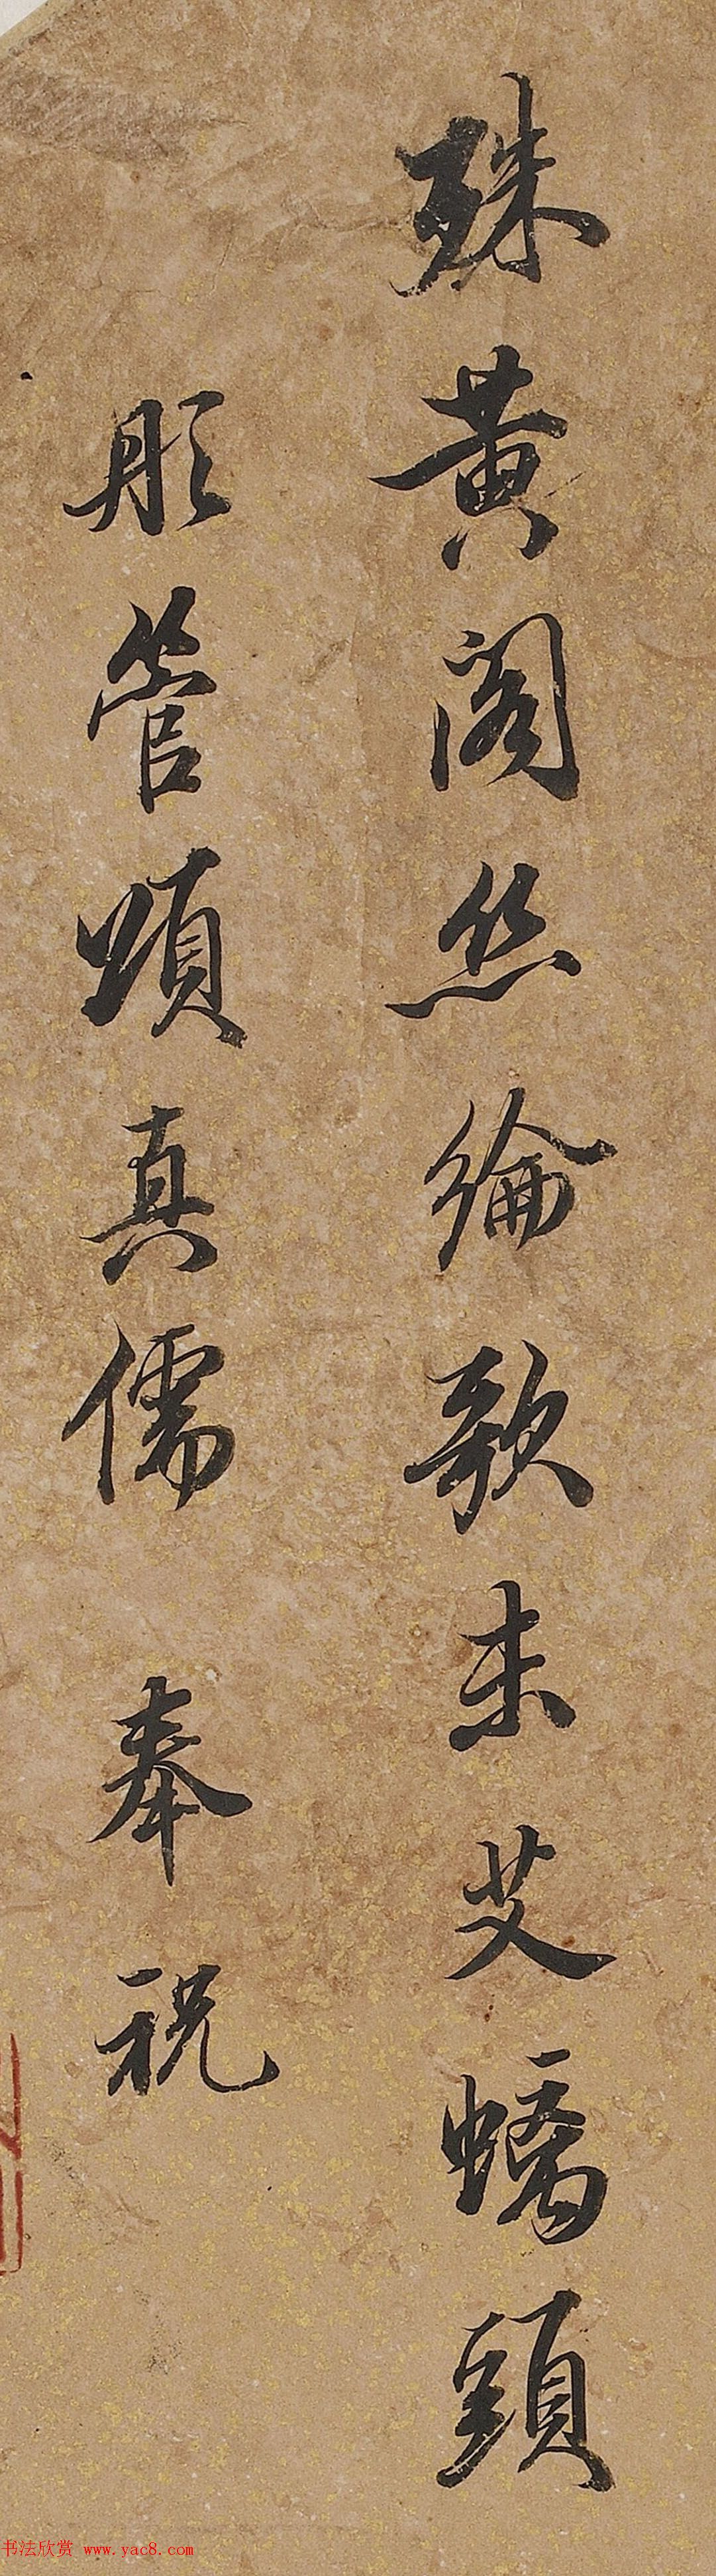 殊黄阁丝纶歌未艾螭頭
彤管頌真儒 奉祝
书法欣赏 www.yac8.com